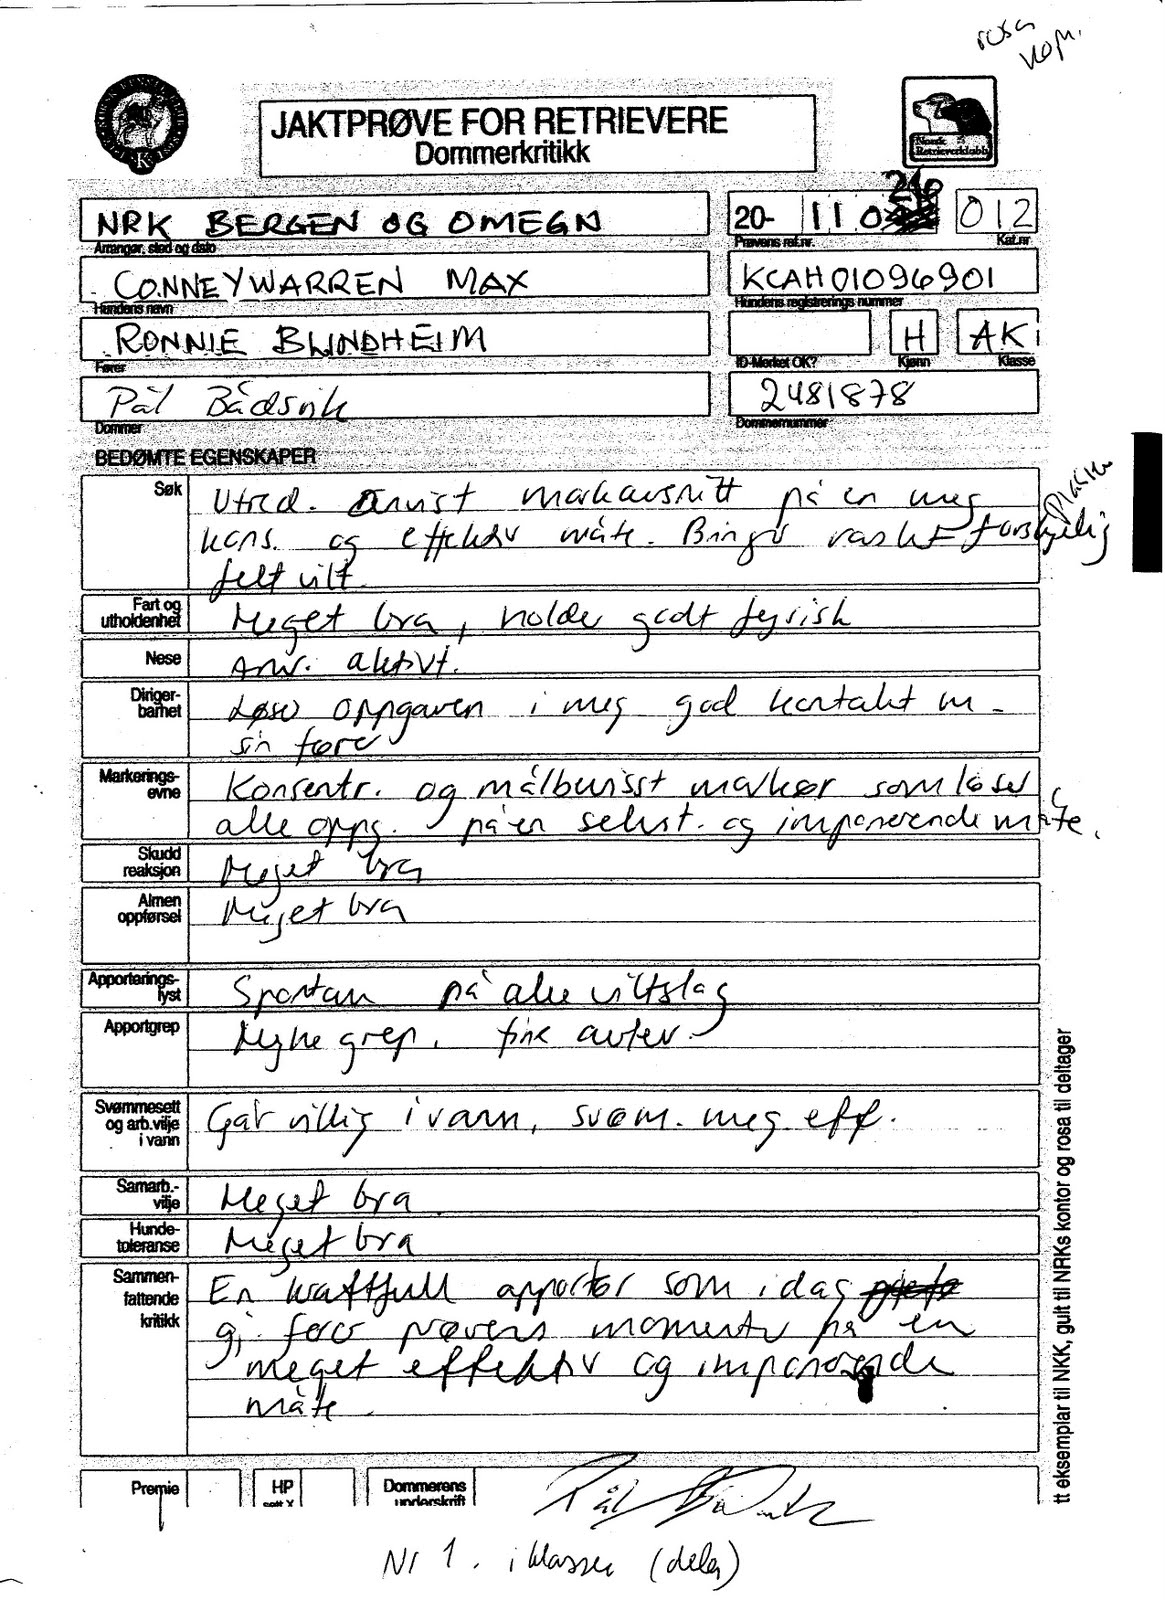 rosa
kopi.
JAKTPRØVE FOR RETRIEVERE
Dommerkritikk
Norsk
Retrieverklubb
NRK BERGEN OG OMEGN
20- 110 216
012
Arrangør, sted og dato
Prøvens ref.nr.
Kat.nr
CONNEYWARREN MAX
KCAH01096901
Hundens navn
Hundens registrerings nummer
RONNIE BLINDHEIM
H
AK
Fører
ID-Merket OK?
Kjønn
Klasse
Pål Bådsvik
2481878
Dommer
Dommernummer
BEDØMTE EGENSKAPER
Søk
Utred. anvist markavsnitt på en meg
kons. og effektiv måte. Bringer raskt forskjellig
felt vilt.
Fart og
utholdenhet
Meget bra, holder godt fysisk
Nese
Anv. aktivt.
Diriger-
barhet
Løser oppgaven i meg god kontakt m
sin fører
Markerings-
evne
Konsentr. og målbevisst markør som løser
alle oppg. på en selvst. og imponerende måte.
Skudd
reaksjon
Meget bra
Almen
oppførsel
Meget bra
Apporterings-
lyst
Spontan på alle viltslag
Apportgrep
Myke grep. fine avlev.
Svømmesett
og arb.vilje
i vann
Går villig i vann, svøm. meg. eff.
Samarb.-
vilje
Meget bra
Hunde-
toleranse
Meget bra
Sammen-
fattende
kritikk
En kraftfull apportør som idag
gj. fører prøvens momenter på en
meget effektiv og imponerende
måte.
Premie
1
HP
sett X
Dommerens
underskrift
Pål Bådsvik
Nr 1. i klassen (dela)
tt eksemplar til NKK, gult til NRKs kontor og rosa til deltager